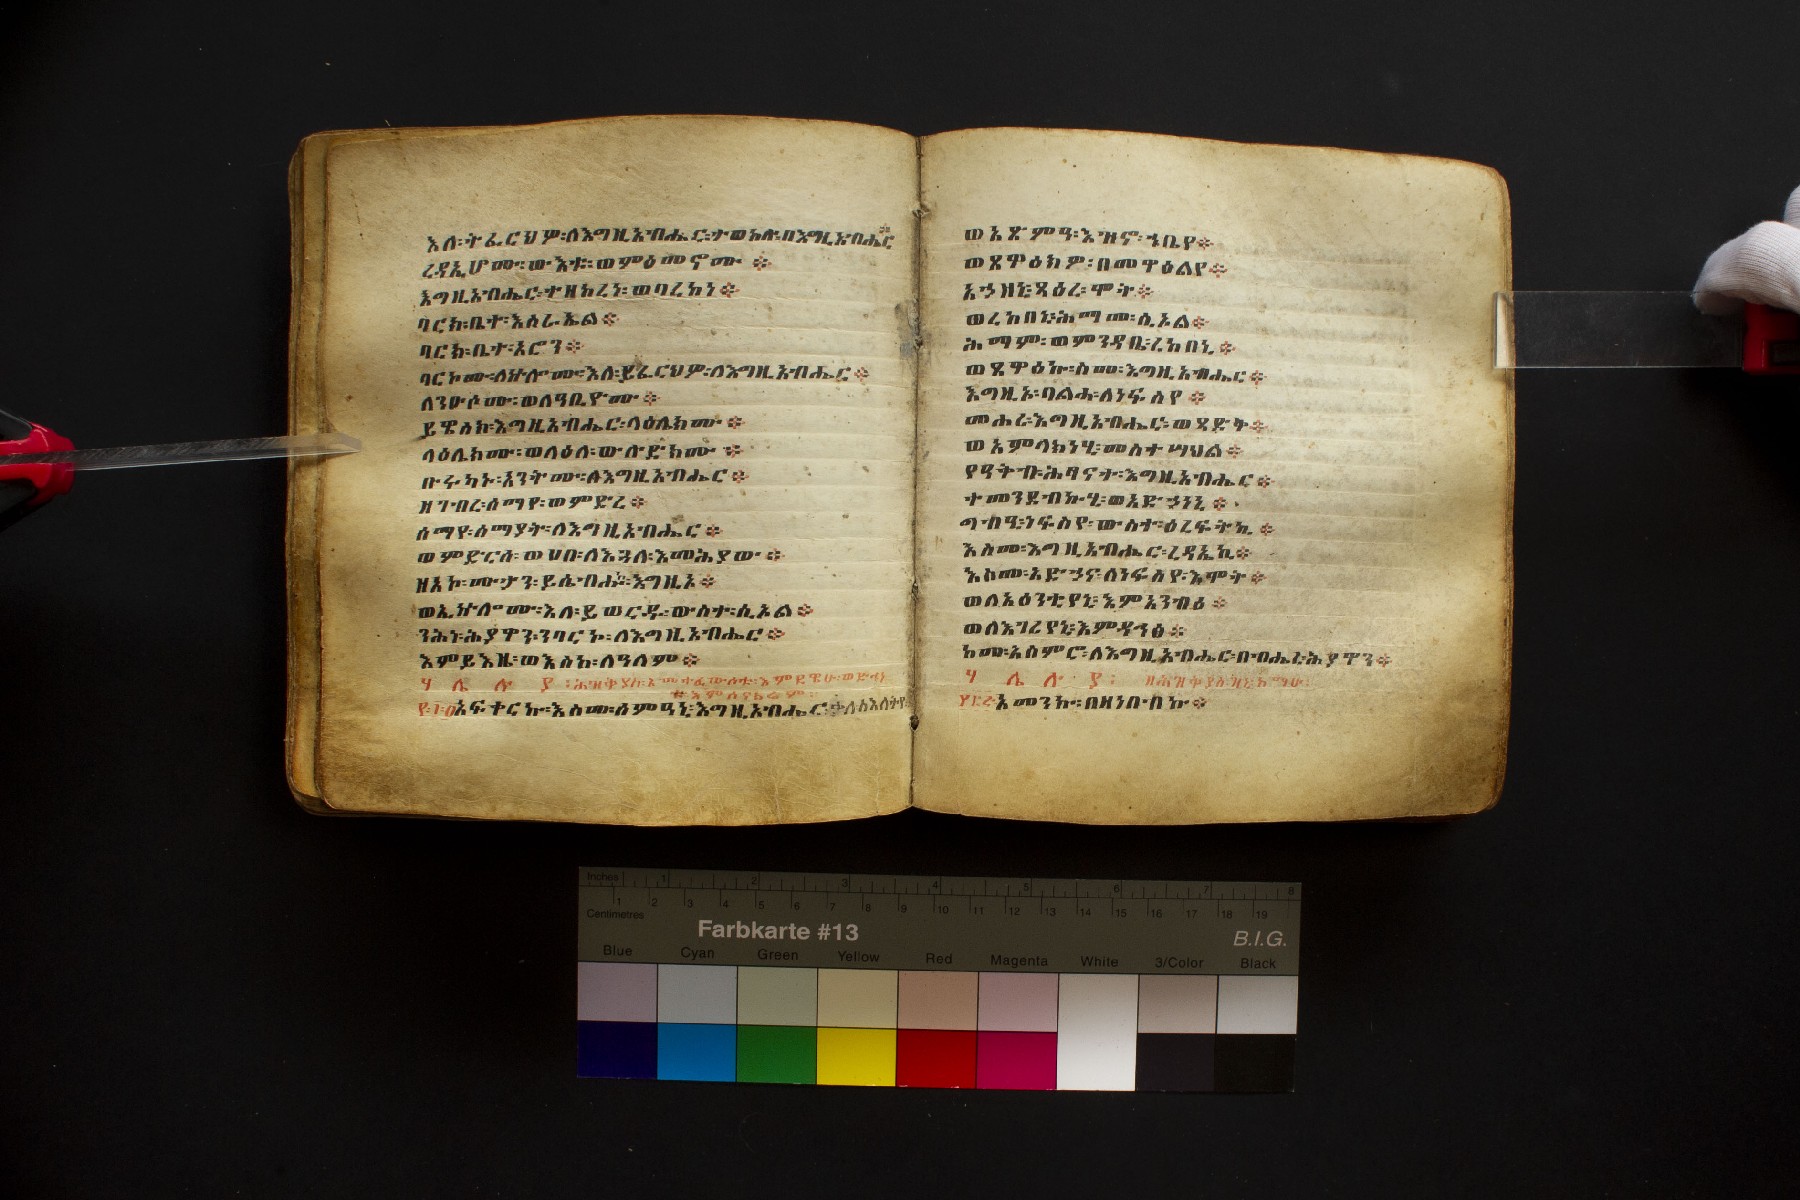 እለ፡ትፈርህዎ፡ለእግዚአብሔር፡ተወከሉ፡በእግዚአብሔር
ረዳኢሆሙ፡ውእቱ፡ወምዕመኖሙ ፨
እግዚአብሔር፡ተዘከረነ፡ወባረከነ ፨
ባርከ፡ቤተ፡እስራኤል ፨
ባሮከ፡ቤተ፡አሮን ፨
ባርኮሙ፡ለኵሎሙ፡እለ፡ይፈርህዎ፡ለእግዚአብሔር ፨
ለንኡሶሙ፡ወለዓቢዮሙ ፨
ይዌስክ፡እግዚአብሔር፡ላዕሌክሙ ፨
ላዕሌክሙ፡ወላዕለ፡ውሉድክሙ ፨
ቡሩካኑ፡አንትሙ፡ለእግዚአብሔር ፨
ዘገብረ፡ሰማየ፡ወምድረ ፨
ሰማየ፡ሰማያት፡ለእግዚአብሔር ፨
ወምድርሰ፡ወሀበ፡ለእጓለ፡እመሕያው ፨
ዘአኮ፡ሙታን፡ይሴብሑ፡እግዚኦ ፨
ወኢኵሎሙ፡እለ፡ይወርዱ፡ውስተ፡ሲኦል ፨
ንሕነ፡ሕያዋን፡ንባርኮ፡ለእግዚአብሔር ፨
እምይእዜ፡ወእስከ፡ለዓለም ፨
ሃ ሌ ሉ ያ ፡
አፍቀርኩ፡እስመ፡ሰምዓኒ፡እግዚአብሔር፡
ወአጽምዓ፡እዝኖ፡ኀቤየ ፨
ወጸዋዕክዎ፡በመዋዕልየ ፨
አኃዘኒ፡ጻዕረ፡ሞት ፨
ወረከበኒ፡ሕማመ፡ሲኦል ፨
ሕማም፡ወምንዳቤ፡ረከበኒ ፨
ወጸዋዕኩ፡ስመ፡እግዚአብሔር ፨
እግዚኦ፡ባልሓ፡ለነፍስየ ፨
መሐሪ፡እግዚአብሔር፡ወጻድቅ ፨
ወአምላክነሂ፡መስተሣህል ፨
የዓቅብ፡ሕፃናተ፡እግዚአብሔር ፨
ተመንደብኩሂ፡ወአድኃነኒ ፨
ግብዒ፡ነፍስየ፡ውስተ፡ዕረፍትኪ ፨
እስመ፡እግዚአብሔር፡ረዳኢኪ ፨
እስመ፡አድኃና፡ለነፍስየ፡እሞት ፨
ወለአዕንቲየኒ፡እምአንብዕ ፨
ወለእገሪየኒ፡እምዳኅፅ ፨
ከመ፡አስምሮ፡ለእግዚአብሔር፡በብሔረ፡ሕያዋን ፨
ሃ ሌ ሉ ያ ፡
አመንኩ፡በዘነበብኩ ፨
Inches 1 2 3 4 5 6 7 8
1 2 3 4 5 6 7 8 9 10 11 12 13 14 15 16 17 18 19
Centimetres
Farbkarte #13
B.I.G.
Blue Cyan Green Yellow Red Magenta White 3/Color Black